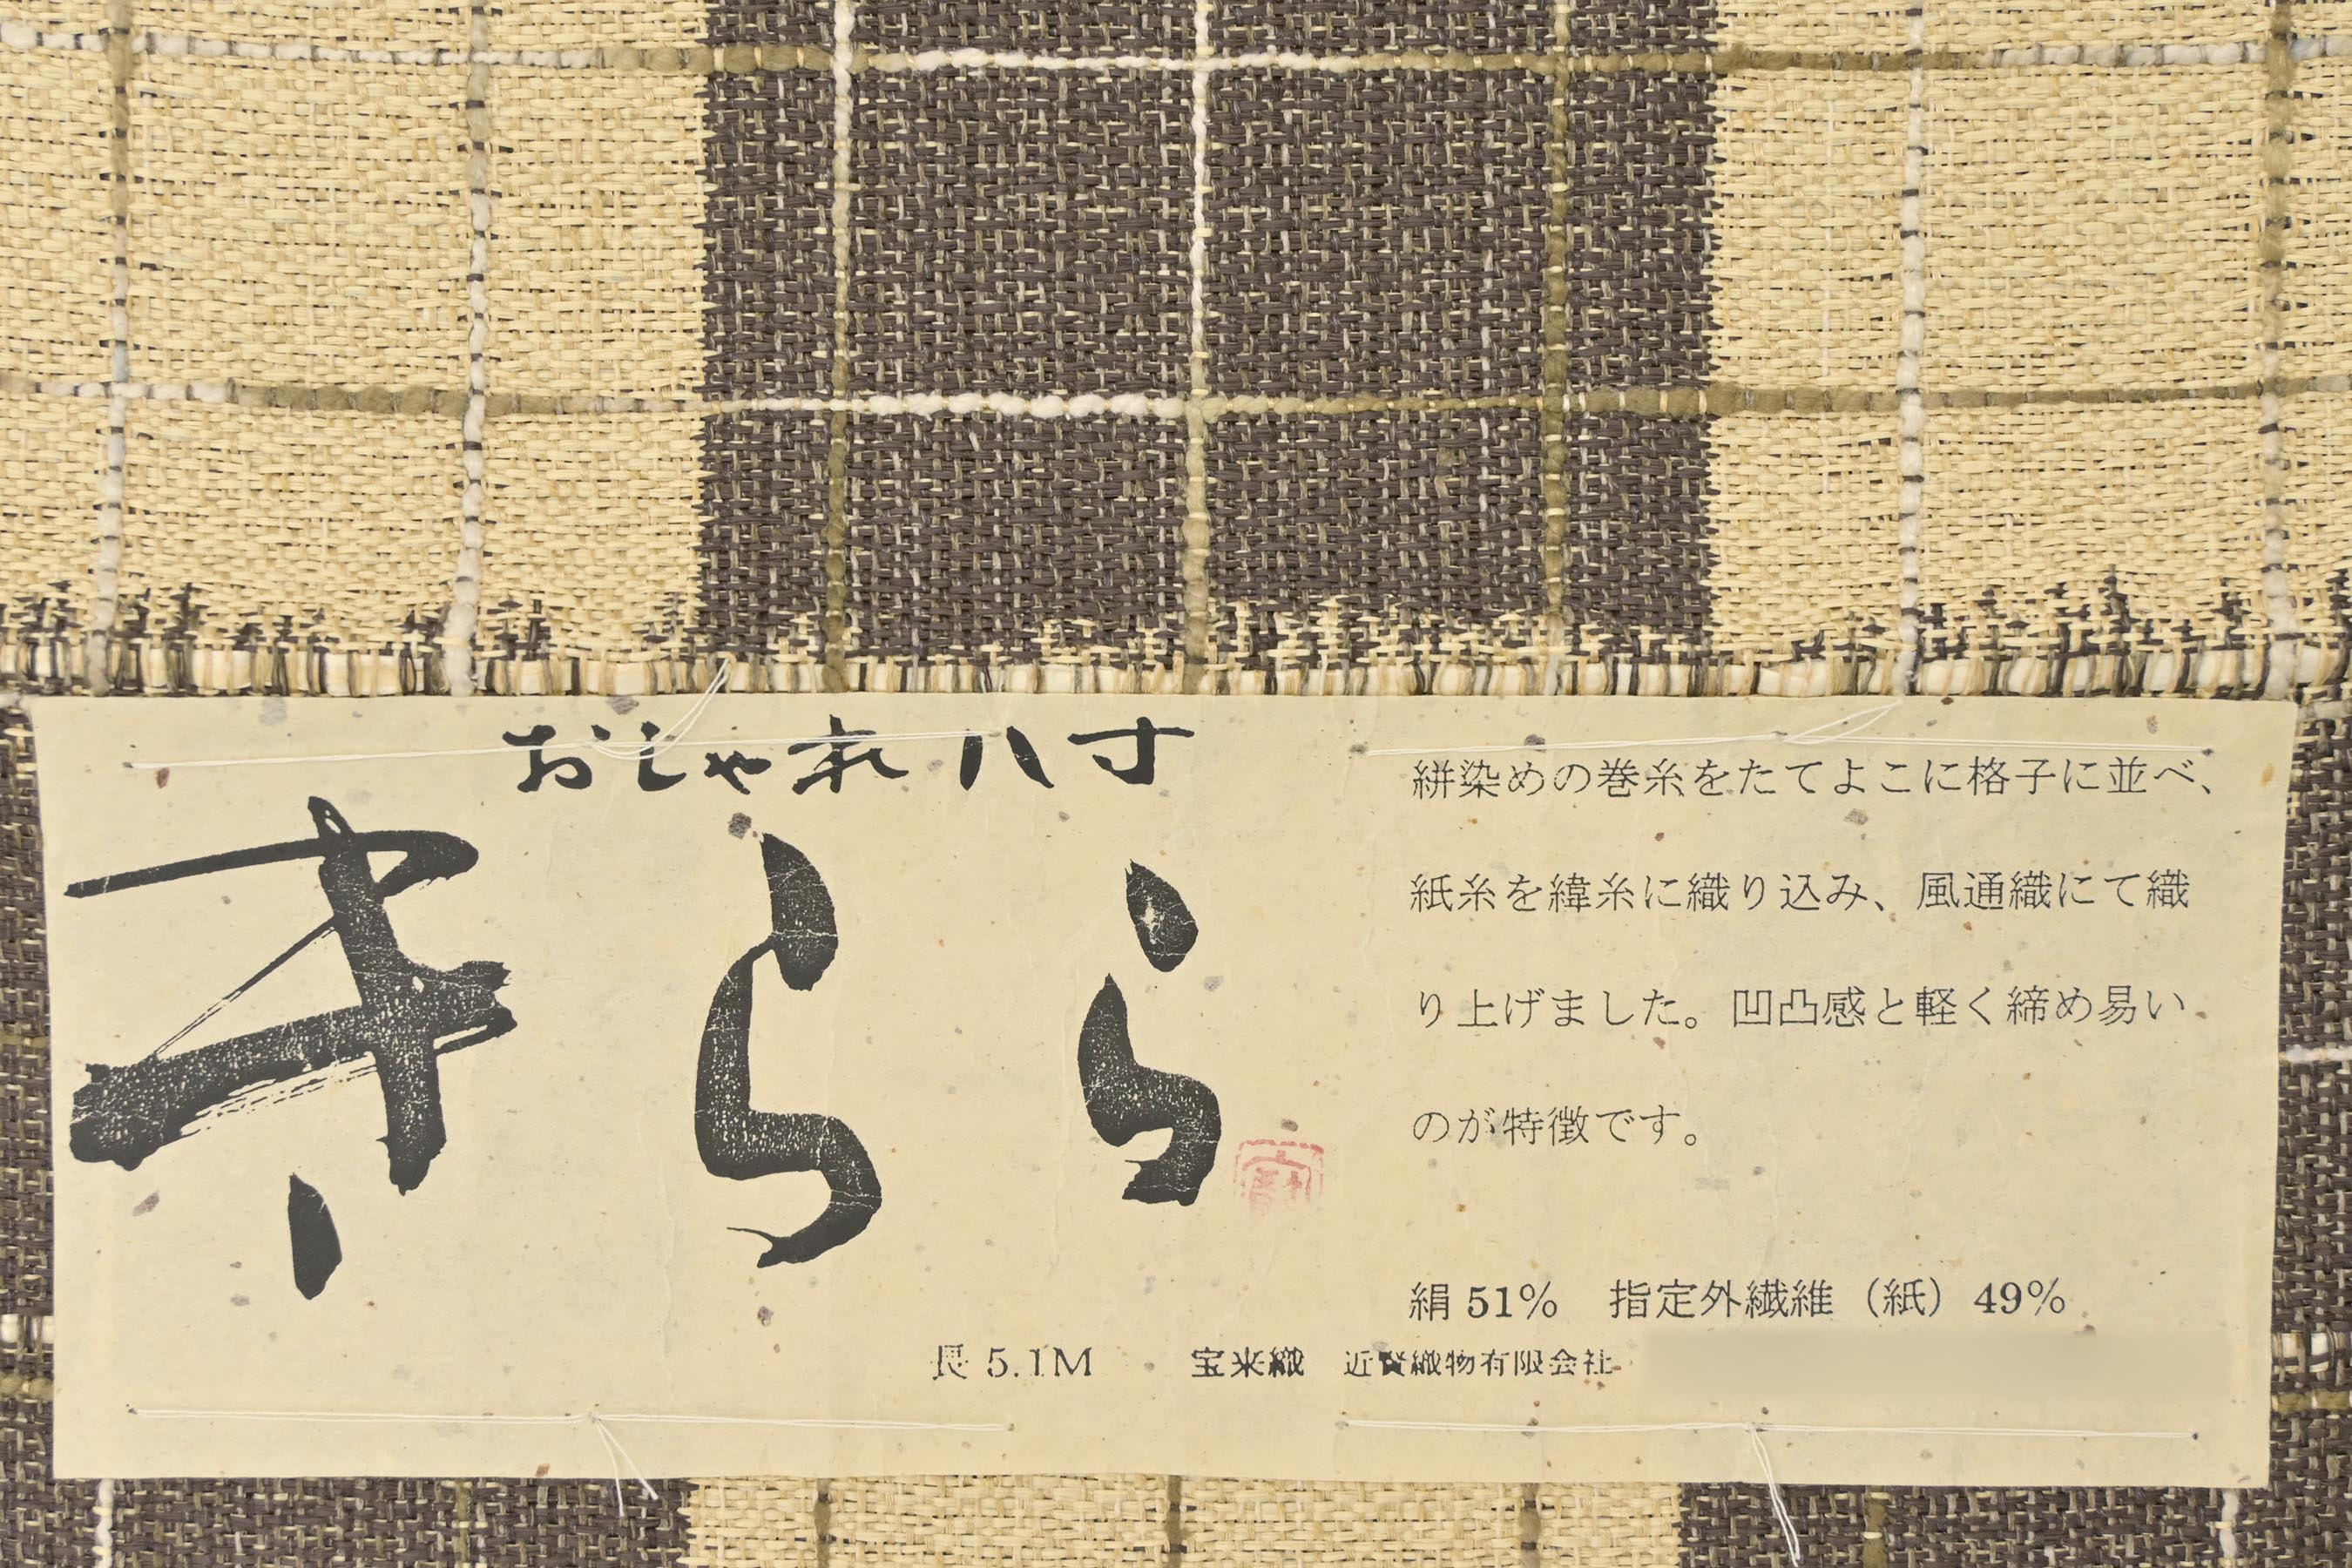 おしゃれ八寸
きらら
絣染めの巻糸をたてよこに格子に並べ、
紙糸を緯糸に織り込み、風通織にて織
り上げました。凹凸感と軽く締め易い
のが特徴です。
絹 51%　指定外繊維（紙）49%
長 5.1M　宝来織　近賢織物有限会社